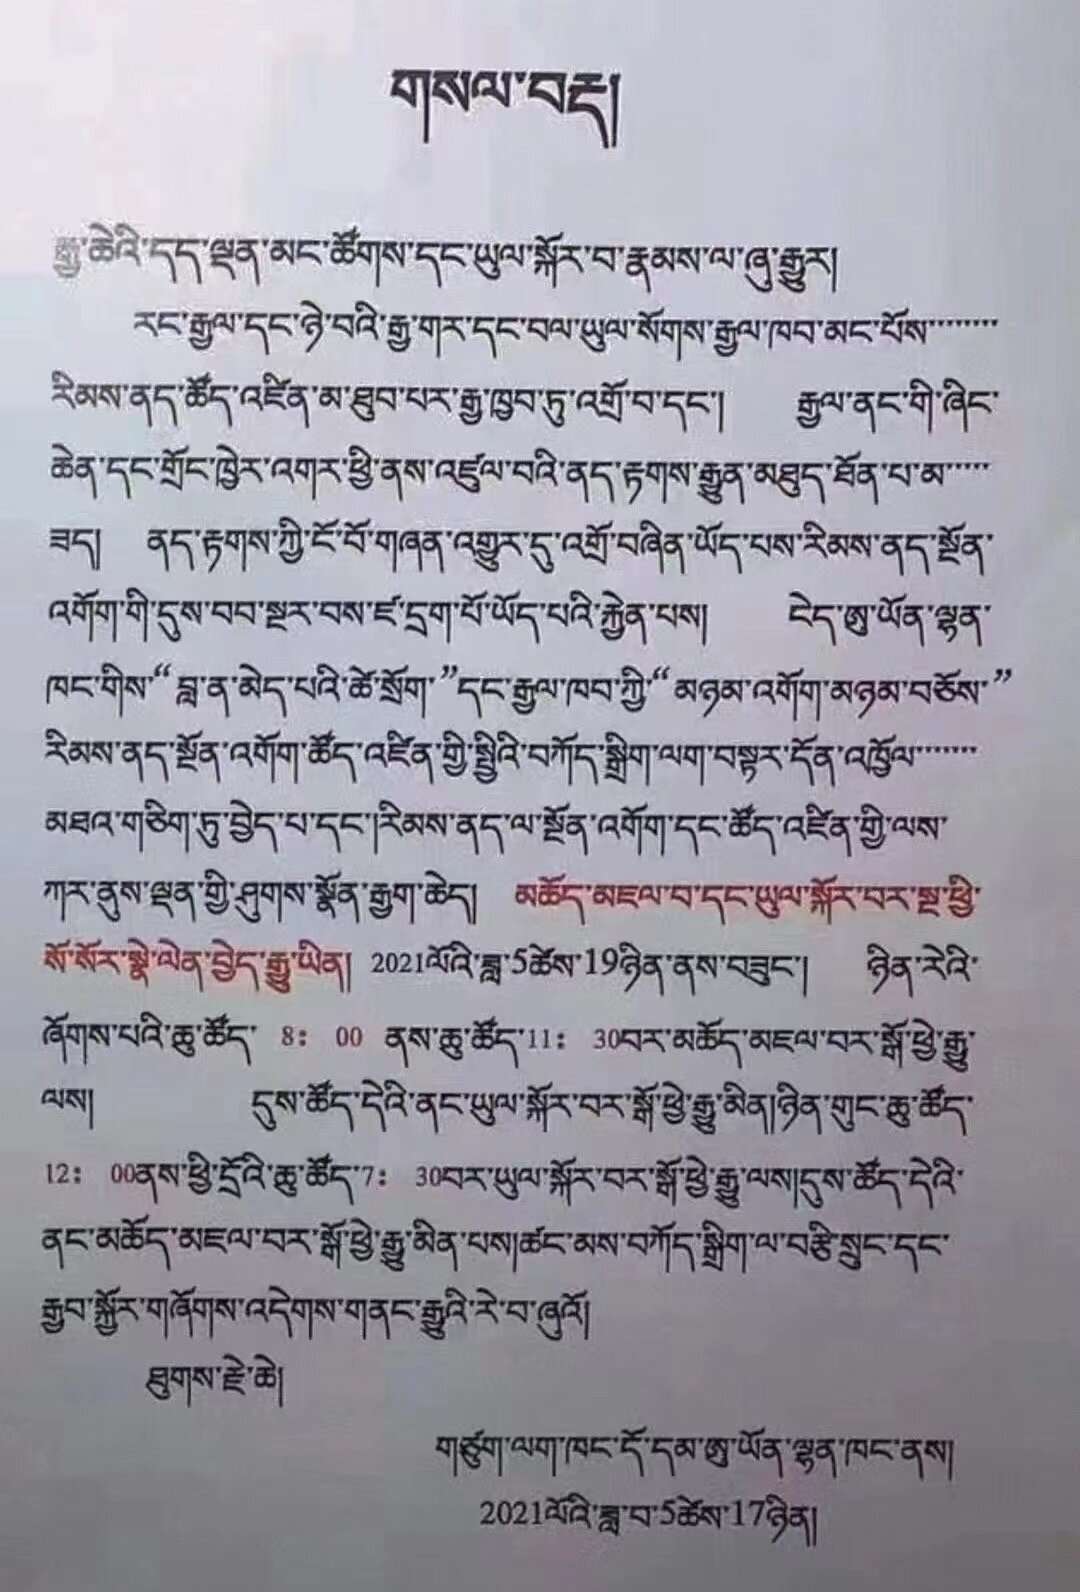 གསལ་བརྡ།
རྒྱ་ཆེའི་དད་ལྡན་མང་ཚོགས་དང་ཡུལ་སྐོར་བ་རྣམས་ལ་ཞུ་རྒྱུར།
རང་རྒྱལ་དང་ཉེ་བའི་རྒྱ་གར་དང་བལ་ཡུལ་སོགས་རྒྱལ་ཁབ་མང་པོས་་་་་་་་
རིམས་ནད་ཚོད་འཛིན་མ་ཐུབ་པར་རྒྱ་ཁྱབ་ཏུ་འགྲོ་བ་དང་། རྒྱལ་ནང་གི་ཞིང་
ཆེན་དང་གྲོང་ཁྱེར་འགར་ཕྱི་ནས་འཛུལ་བའི་ནད་རྟགས་རྒྱུན་མཐུད་ཐོན་པ་མ་་་་་
ཟད། ནད་རྟགས་ཀྱི་ངོ་བོ་གཞན་འགྱུར་དུ་འགྲོ་བཞིན་ཡོད་པས་རིམས་ནད་སྔོན་
འགོག་གི་དུས་བབ་སྔར་བས་ཛ་དྲག་པོ་ཡོད་པའི་རྐྱེན་པས། ངེད་ཨུ་ཡོན་ལྷན་
ཁང་གིས་“བླ་ན་མེད་པའི་ཚེ་སྲོག་”དང་རྒྱལ་ཁབ་ཀྱི་“མཉམ་འགོག་མཉམ་བཅོས་”
རིམས་ནད་སྔོན་འགོག་ཚོད་འཛིན་གྱི་སྤྱིའི་བཀོད་སྒྲིག་ལག་བསྟར་དོན་འཁྱོལ་་་་་་་
མཐའ་གཅིག་ཏུ་བྱེད་པ་དང་།རིམས་ནད་ལ་སྔོན་འགོག་དང་ཚོད་འཛིན་གྱི་ལས་
ཀར་ནུས་ལྡན་གྱི་ཤུགས་སྣོན་རྒྱག་ཆེད། མཆོད་མཇལ་བ་དང་ཡུལ་སྐོར་བར་སྔ་ཕྱི་
སོ་སོར་སྣེ་ལེན་བྱེད་རྒྱུ་ཡིན། 2021ལོའི་ཟླ་5ཚེས་19ཉིན་ནས་བཟུང་། ཉིན་རེའི་
ཞོགས་པའི་ཆུ་ཚོད་ 8：00 ནས་ཆུ་ཚོད་11：30བར་མཆོད་མཇལ་བར་སྒོ་ཕྱེ་རྒྱུ་
ལས། དུས་ཚོད་དེའི་ནང་ཡུལ་སྐོར་བར་སྒོ་ཕྱེ་རྒྱུ་མིན།ཉིན་གུང་ཆུ་ཚོད་
12：00ནས་ཕྱི་དྲོའི་ཆུ་ཚོད་7：30བར་ཡུལ་སྐོར་བར་སྒོ་ཕྱེ་རྒྱུ་ལས།དུས་ཚོད་དེའི་
ནང་མཆོད་མཇལ་བར་སྒོ་ཕྱེ་རྒྱུ་མིན་པས།ཚང་མས་བཀོད་སྒྲིག་ལ་བརྩི་སྲུང་དང་
རྒྱབ་སྐྱོར་གཞོགས་འདེགས་གནང་རྒྱུའི་རེ་བ་ཞུའོ།
ཐུགས་རྗེ་ཆེ།
གཙུག་ལག་ཁང་དོ་དམ་ཨུ་ཡོན་ལྷན་ཁང་ནས།
2021ལོའི་ཟླ་བ་5ཚེས་17ཉིན།